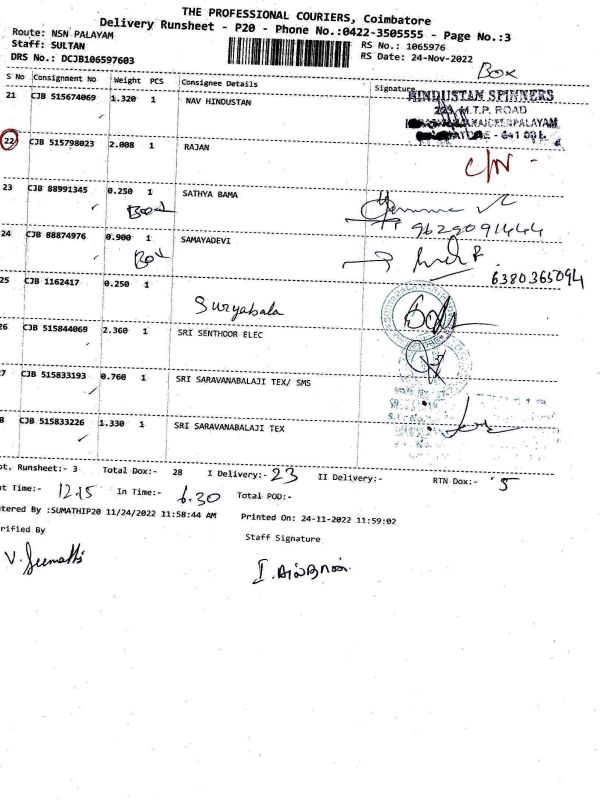 THE PROFESSIONAL COURIERS, Coimbatore
Delivery Runsheet - P20 - Phone No.:0422-3505555 - Page No.:3
Route: NSN PALAYAM
Staff: SULTAN RS No.: 1065976
DRS No.: DCJB106597603 RS Date: 24-Nov-2022
Box
S No Consignment No Weight PCS Consignee Details Signature
21 CJB 515674069 1.320 1 NAV HINDUSTAN
HINDUSTAN SPINNERS
M.T.P. ROAD
22 CJB 515798023 2.008 1 RAJAN
C/N -
23 CJB 88991345 0.250 1 SATHYA BAMA
9629091444
24 CJB 88874976 0.900 1 SAMAYADEVI
6380365094
25 CJB 1162417 0.250 1
Suryabala
26 CJB 515844069 2.360 1 SRI SENTHOOR ELEC
7 CJB 515833193 0.760 1 SRI SARAVANABALAJI TEX/ SMS
8 CJB 515833226 1.330 1 SRI SARAVANABALAJI TEX
ot. Runsheet:- 3 Total Dox:- 28 I Delivery:- 23 II Delivery:- RTN Dox:- 5
ut Time:- 12.15 In Time:- 6.30 Total POD:-
tered By :SUMATHIP20 11/24/2022 11:58:44 AM Printed On: 24-11-2022 11:59:02
erified By Staff Signature